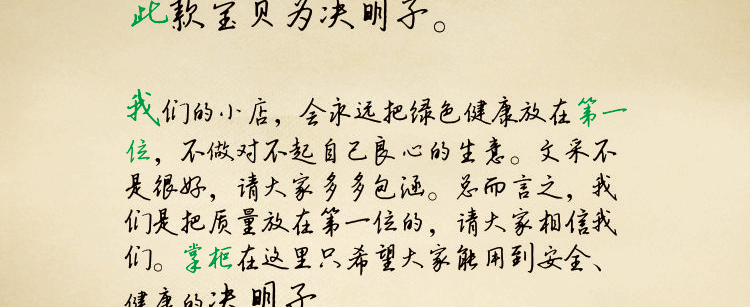 此款宝贝为决明子。
我们的小店，会永远把绿色健康放在第一
位，不做对不起自己良心的生意。文采不
是很好，请大家多多包涵。总而言之，我
们是把质量放在第一位的，请大家相信我
们。掌柜在这里只希望大家能用到安全、
健康的决明子